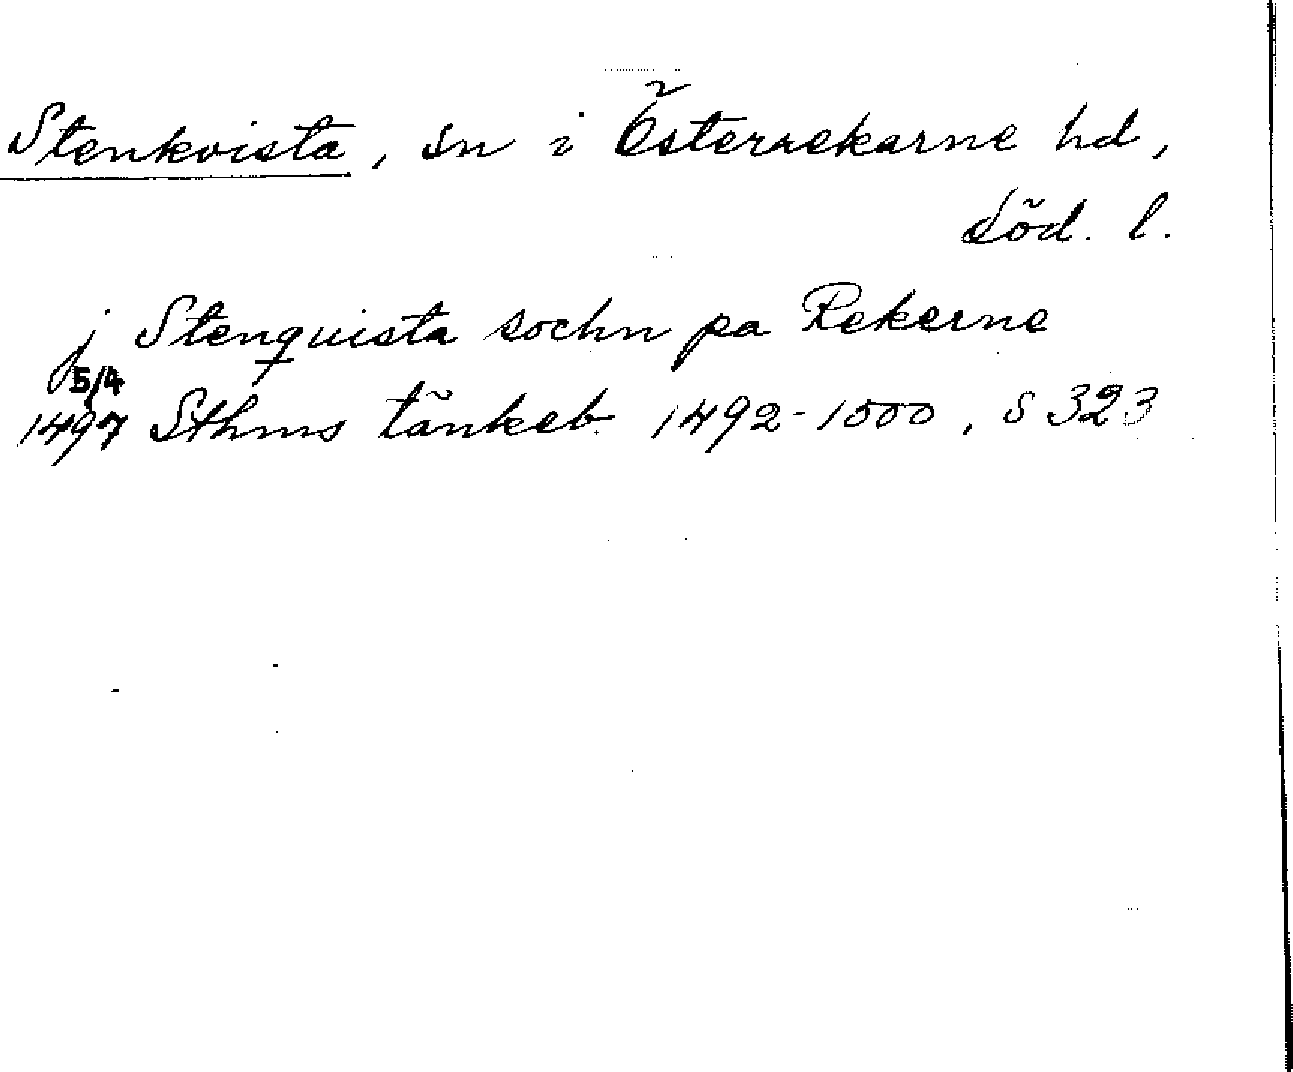 Stenkvista, sn i Österrekarne hd,
Söd. l.
j Stenquista sochn pa Rekerne
5/4
1497 Sthms tänkeb. 1492-1500, S 323